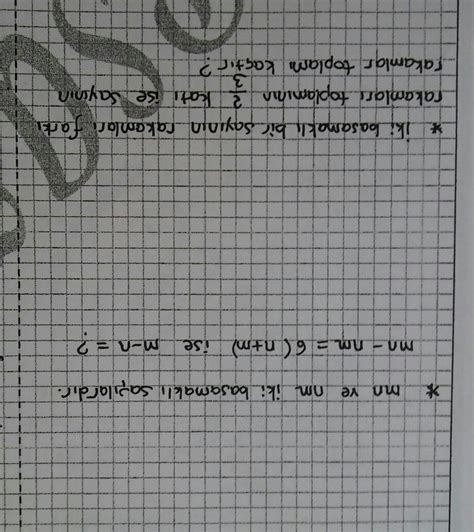 * mn ve nm iki basamaklı sayılardır.
mn - nm = 6(n+m) ise m-n = ?
* iki basamaklı bir sayının rakamları farkı
rakamları toplamının 2/3 katı ise sayının
rakamlar toplamı kaçtır?